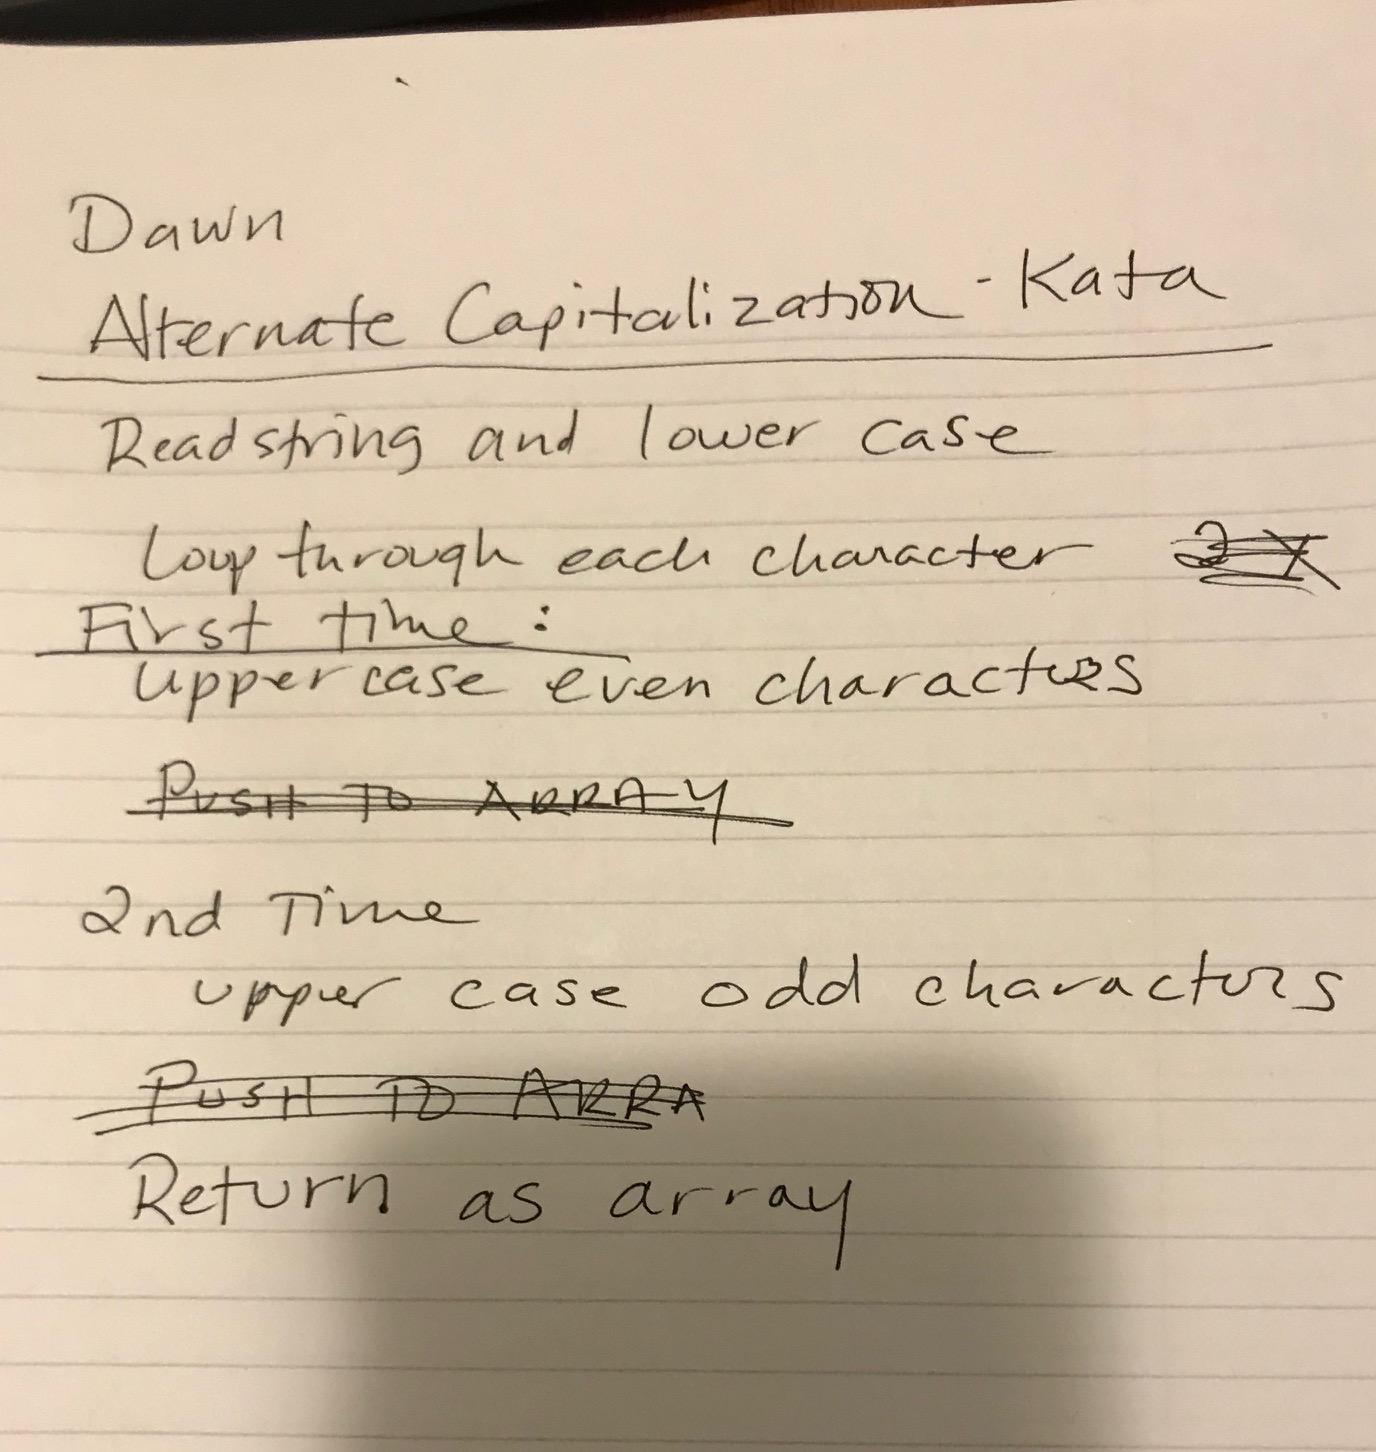 Dawn
Alternate Capitalization - Kata
Read string and lower case
Loop through each character 2x
First time:
Uppercase even characters
PUSH TO ARRAY
2nd Time
upper case odd characters
PUSH TO ARRA
Return as array